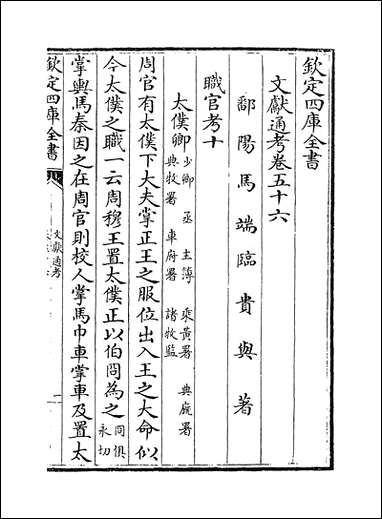 欽定四庫全書
文獻通考卷五十六
鄱陽馬端臨貴與著
職官考十
太僕卿少卿 丞 主簿 乘黄署 典廐署
典牧署 車府署 諸牧監
周官有太僕下大夫掌正王之服位出入王之大命似
今太僕之職一云周穆王置太僕正以伯冏為之冏俱
永切
掌輿馬秦因之在周官則校人掌馬巾車掌車及置太
欽定四庫全書
文獻通考
一